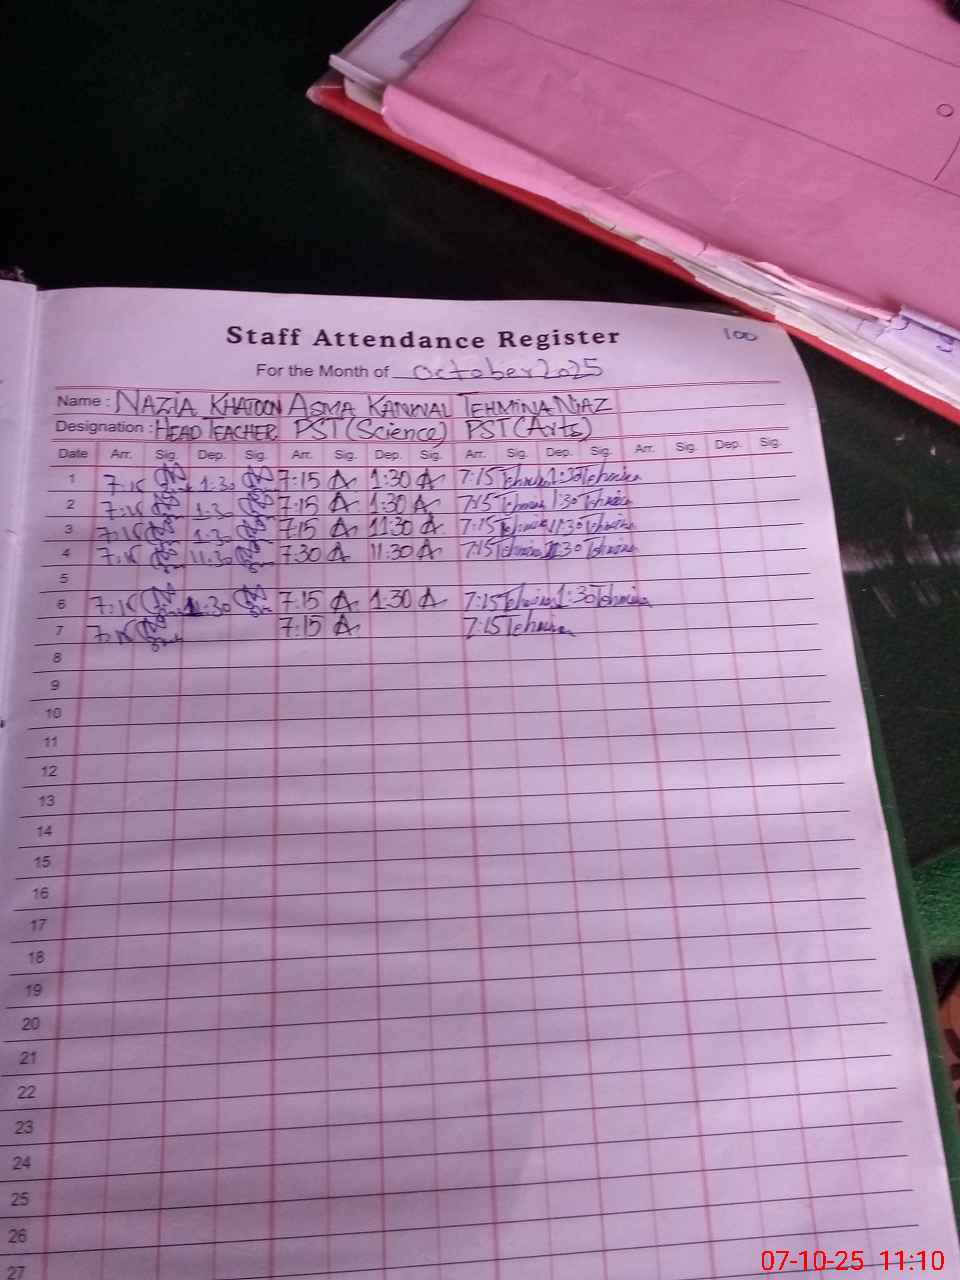 100
Staff Attendance Register
For the Month of October 2025
Name : NAZIA KHATOON ASMA KANWAL TEHMINA NIAZ
Designation : HEAD TEACHER PST (Science) PST (Arts)
Date Arr. Sig. Dep. Sig. Arr. Sig. Dep. Sig. Arr. Sig. Dep. Sig. Arr. Sig. Dep. Sig.
1 7:15 1:30 7:15 A 1:30 A 7:15 Tehmina 1:30 Tehmina
2 7:15 1:30 7:15 A 1:30 A 7:15 Tehmina 1:30 Tehmina
3 7:15 1:30 7:15 A 11:30 A 7:15 Tehmina 11:30 Tehmina
4 7:15 11:30 7:30 A 11:30 A 7:15 Tehmina 11:30 Tehmina
5
6 7:15 1:30 7:15 A 1:30 A 7:15 Tehmina 1:30 Tehmina
7 7:15 7:15 A 7:15 Tehmina
8
9
10
11
12
13
14
15
16
17
18
19
20
21
22
23
24
25
26
27
07-10-25 11:10